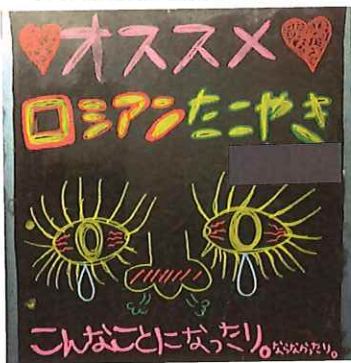 オススメ
ロシアンたこやき
こんなことになったり。ならなかったり。